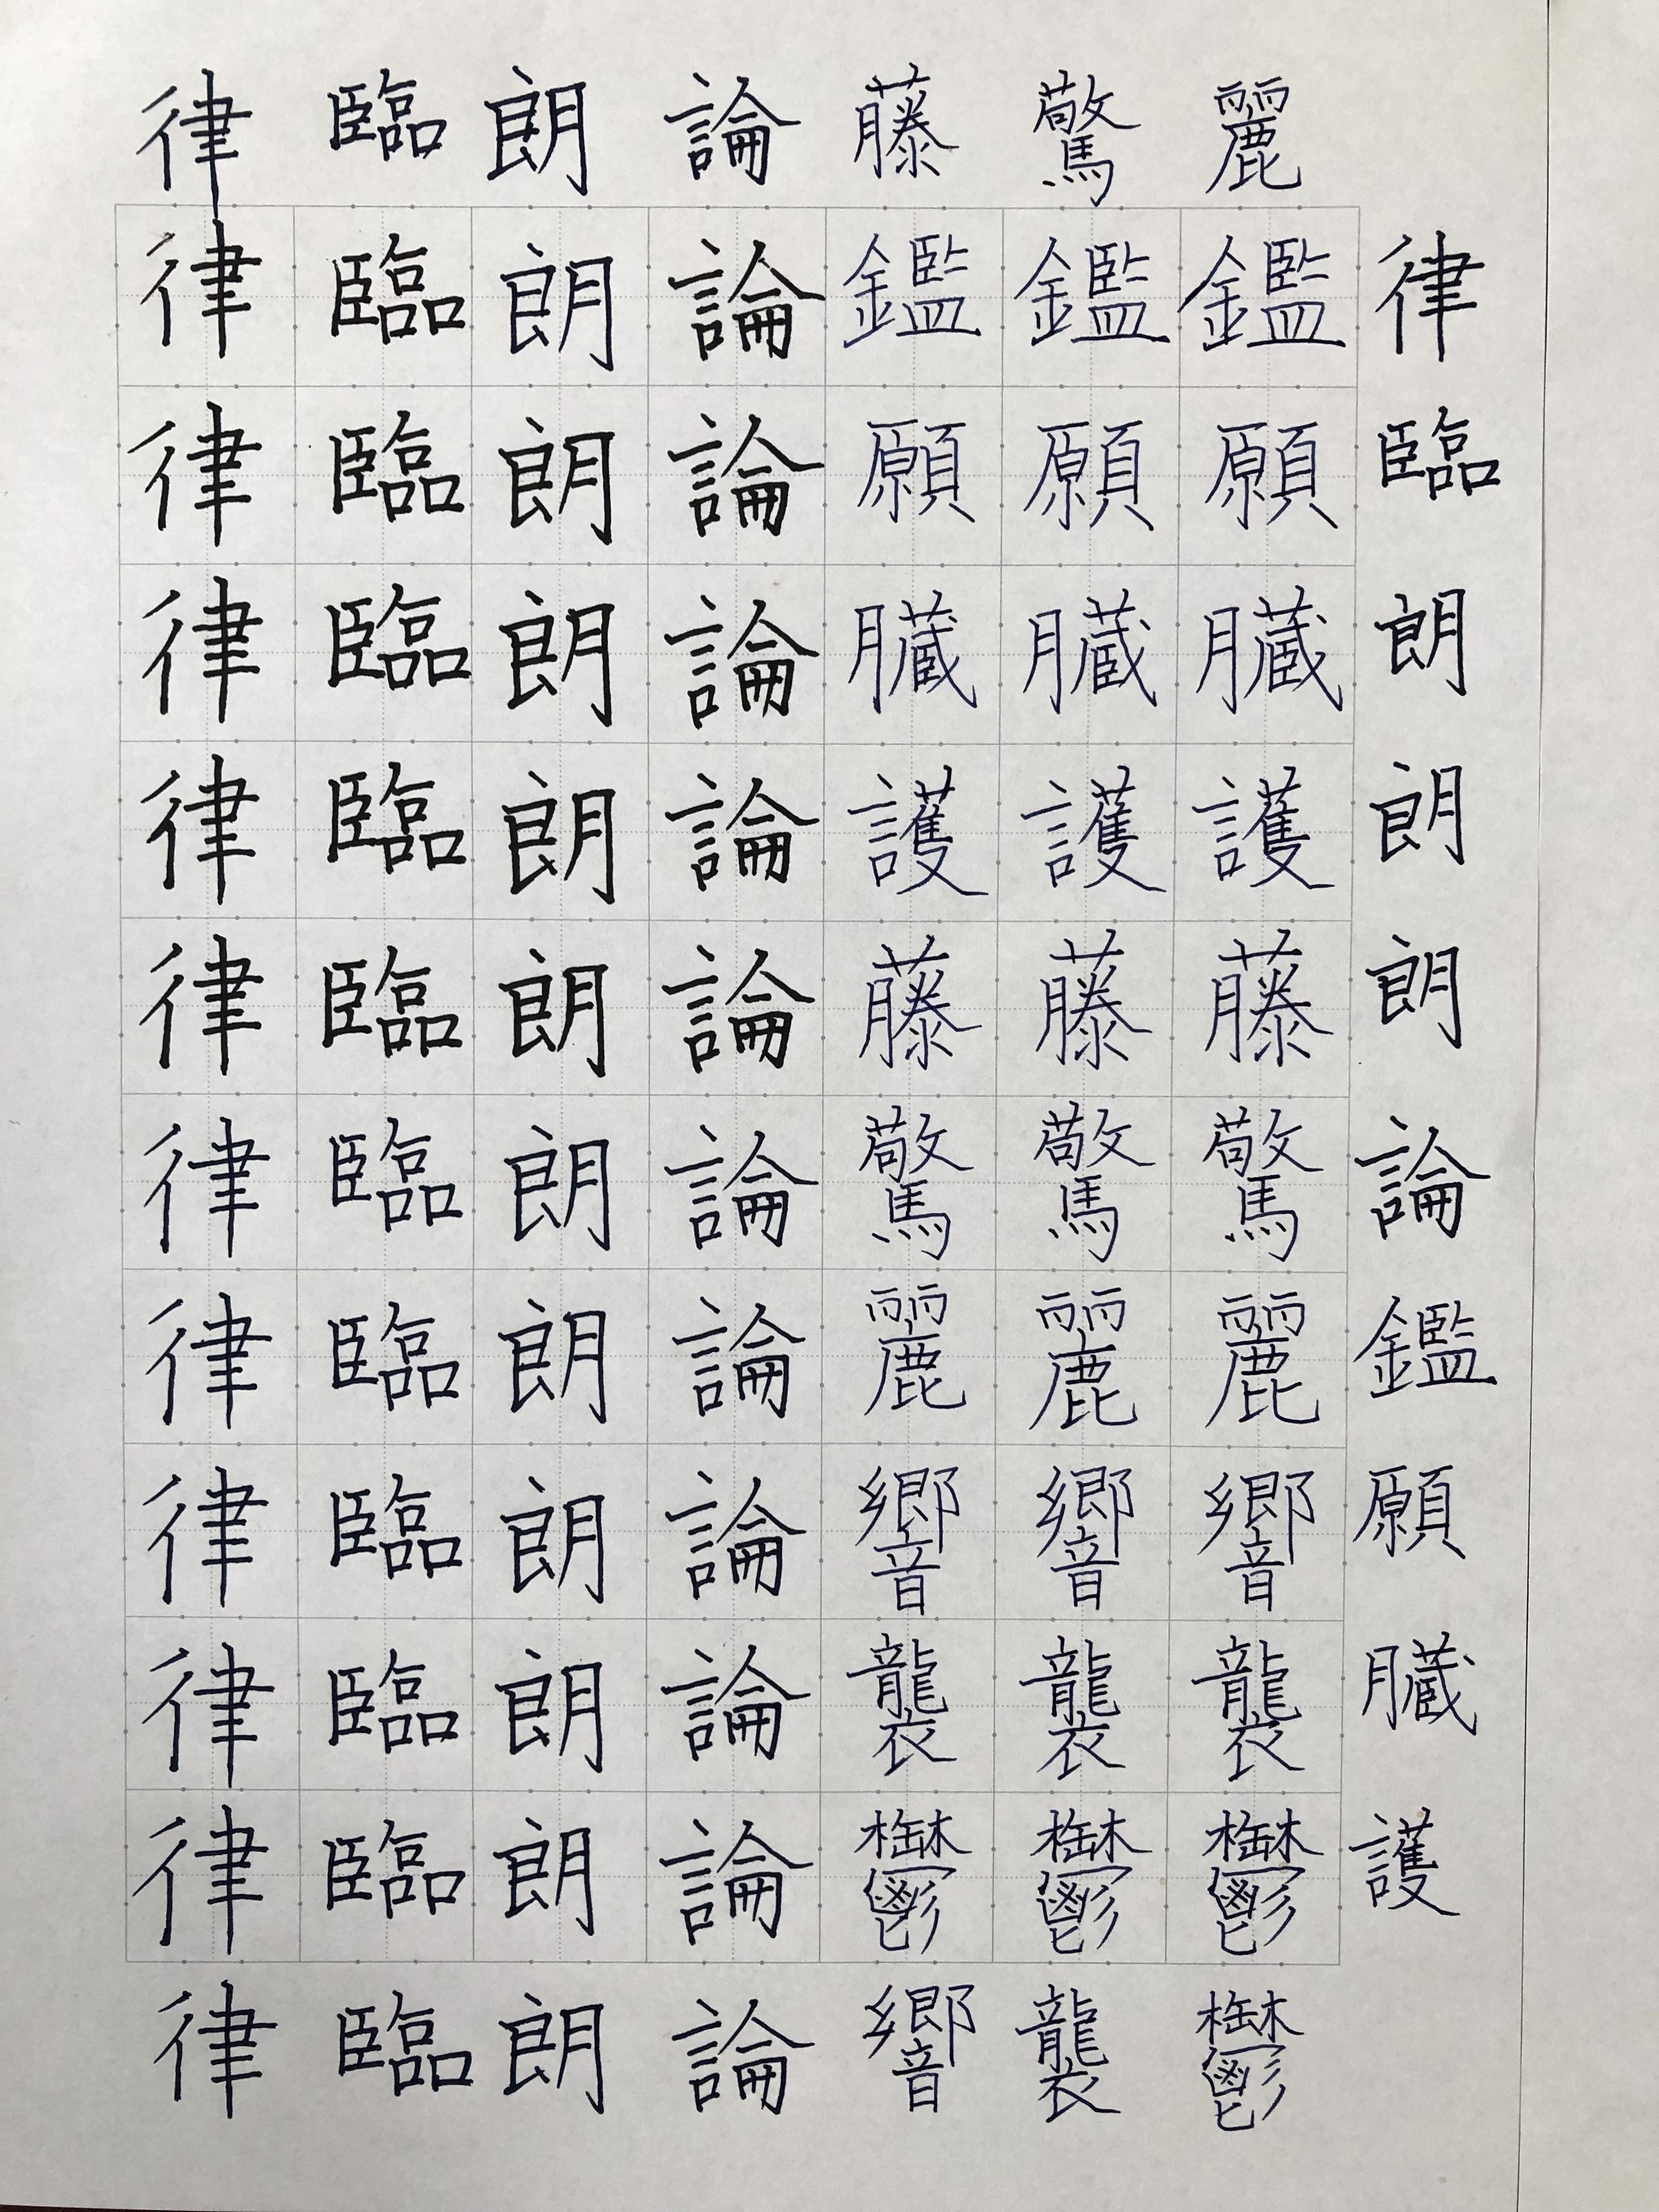 律 臨 朗 論 藤 驚 麗
律 臨 朗 論 鑑 鑑 鑑 律
律 臨 朗 論 願 願 願 臨
律 臨 朗 論 臓 臓 臓 朗
律 臨 朗 論 護 護 護 朗
律 臨 朗 論 藤 藤 藤 朗
律 臨 朗 論 驚 驚 驚 論
律 臨 朗 論 麗 麗 麗 鑑
律 臨 朗 論 響 響 響 願
律 臨 朗 論 襲 襲 襲 臓
律 臨 朗 論 鬱 鬱 鬱 護
律 臨 朗 論 響 襲 鬱